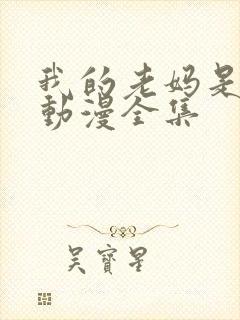 我的老妈是
動漫全集
吴寶星